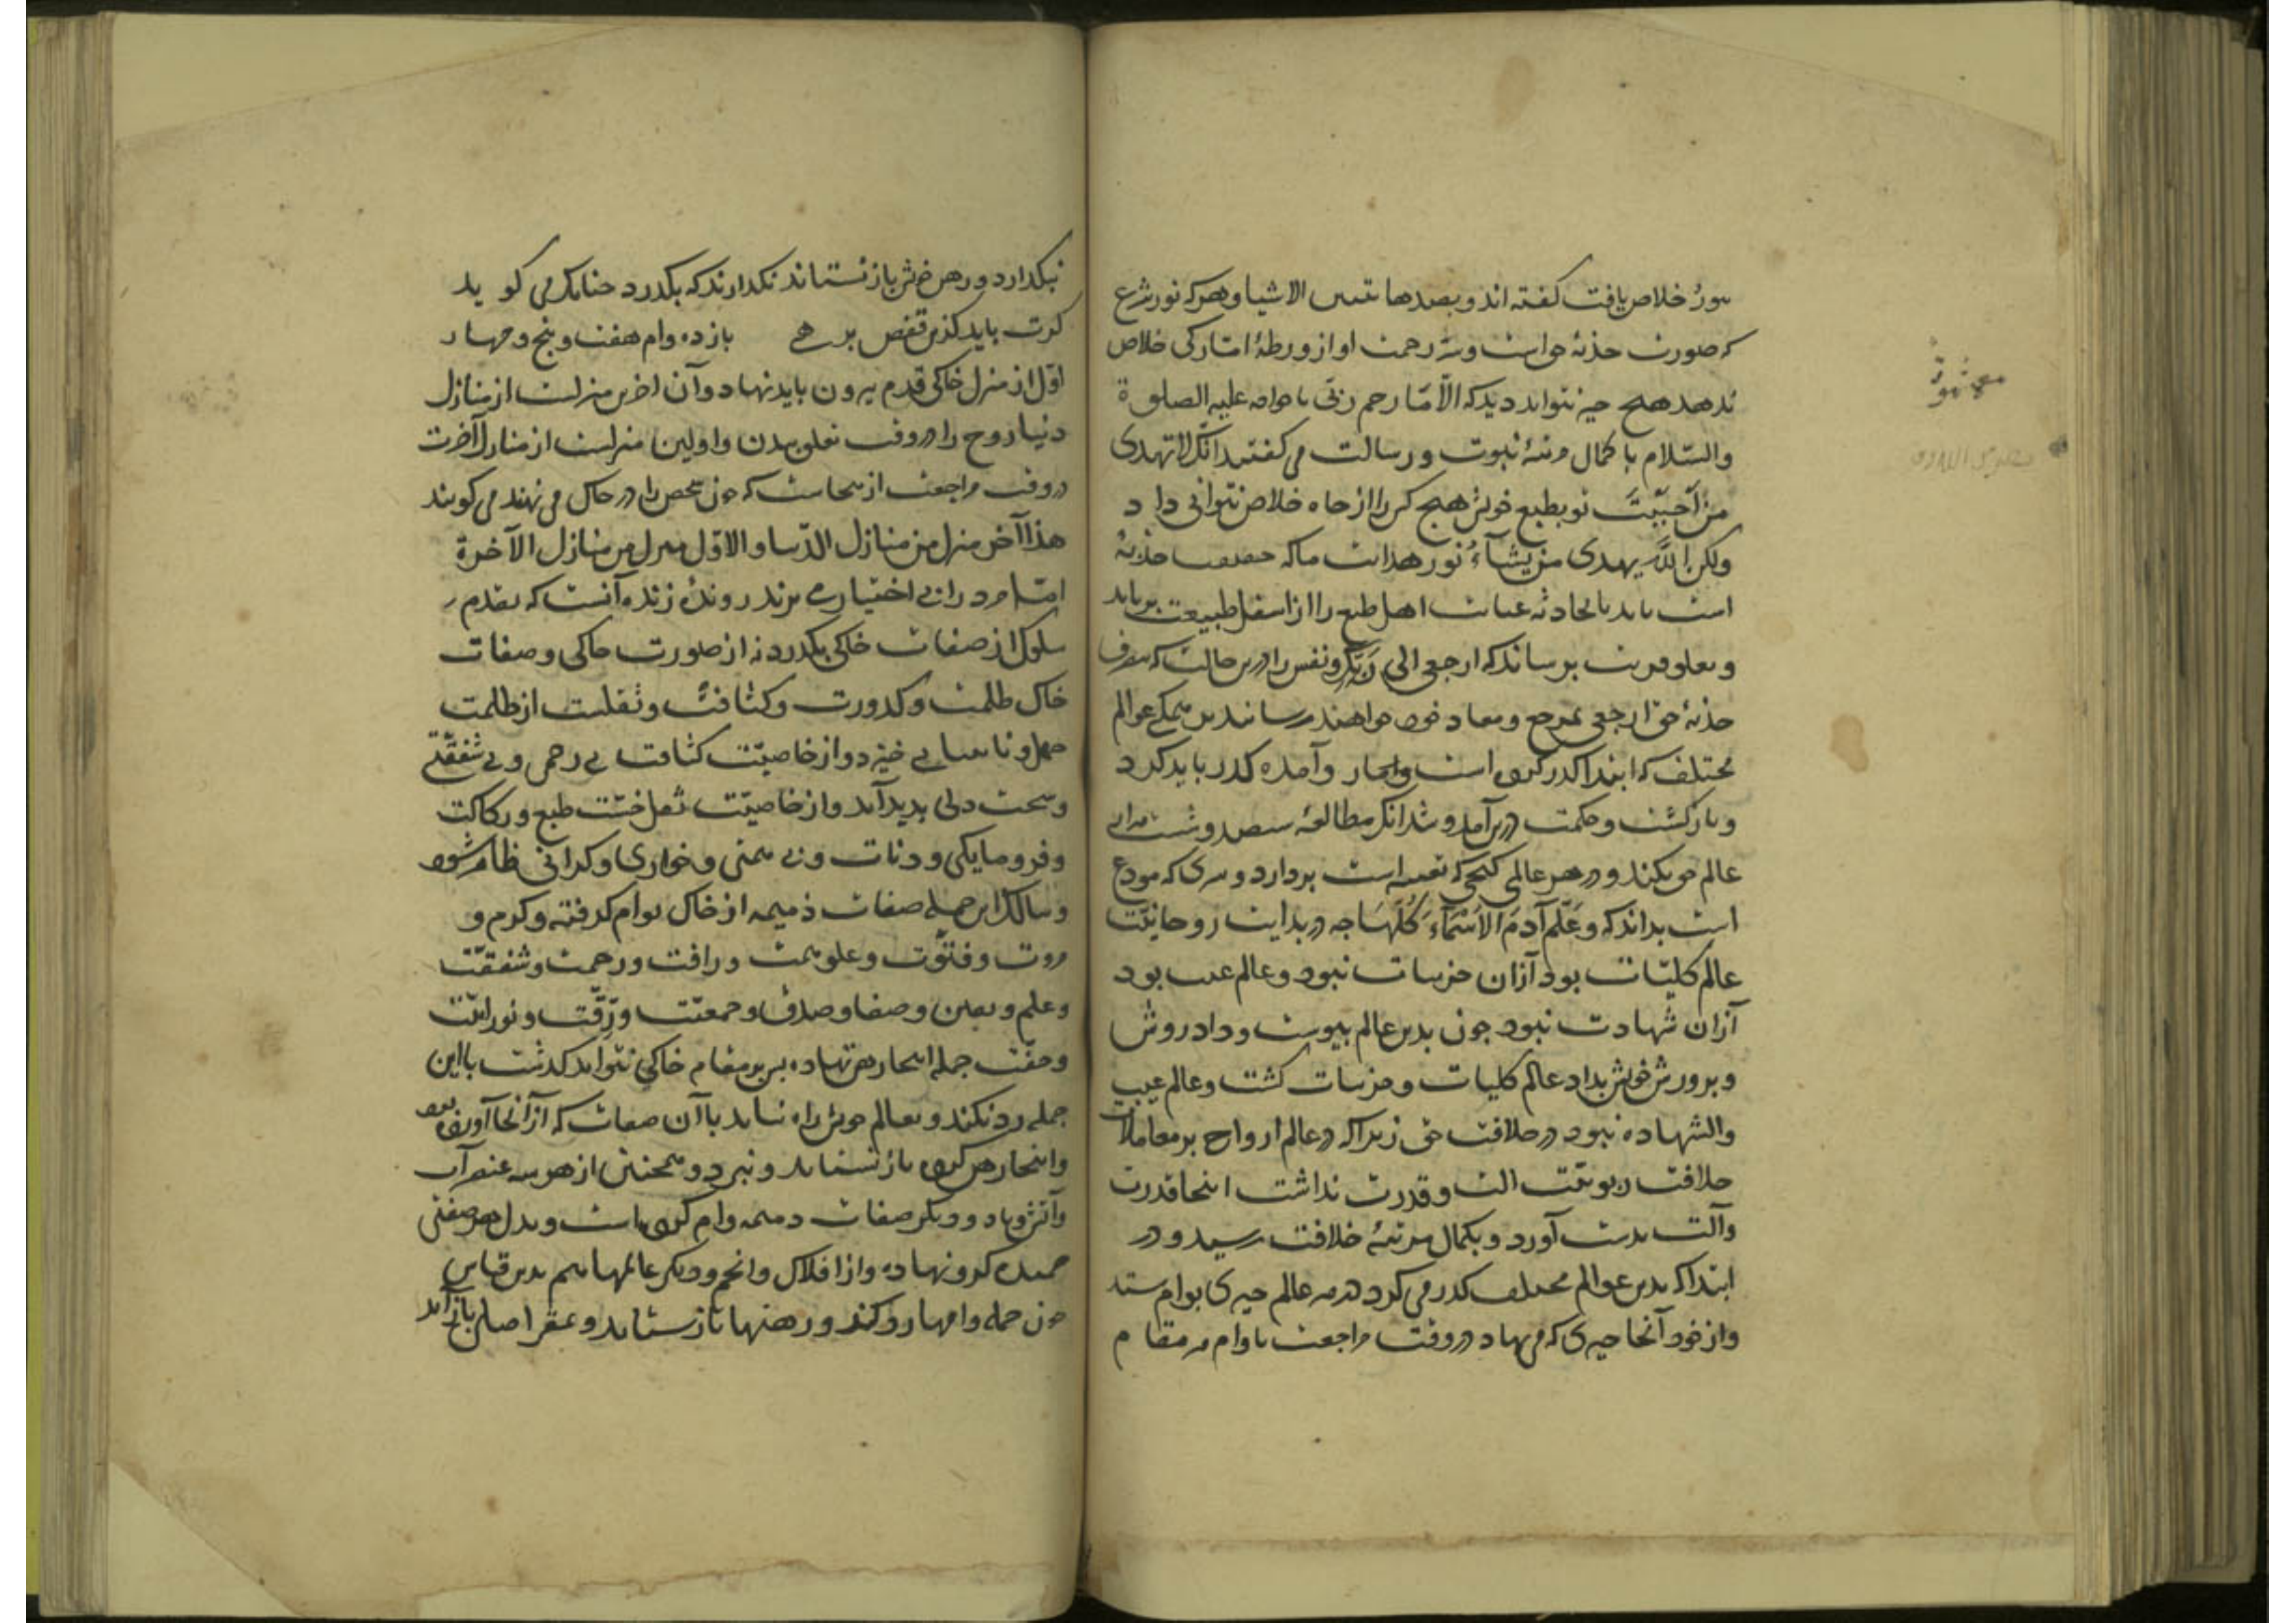 خلاص یافت گفته اند وبضدها تتبین الاشیا وهرکه نور شرع
که صورت جذبهٔ حق است وسرّ رحمت او از ورطهٔ امّارکی خلاص
ندهد هیچ چیز نتواند دید که الّا مّا رحم ربّی با خواجه علیه الصلوة
والسّلام با کمال مرتبهٔ نبوت ورسالت می گفتند انّک لا تهدی
من اَحبَبْتَ تو بطبع خویش هیچ کس را از چاه خلاص نتوانی دا د
ولکن اللّه یهدی من یشآءُ نور هدایت ما که حقیقت جذبهٔ
است باید تا بجاذبهٔ عنایت اهل طبع را از اسفل طبیعت برباید
وبعلو قربت برساند که ارجعی الی رَبِّکِ ونفس را درین حالت که بتصرف
جذبهٔ حق ارجعی بمرجع ومعاد خود خواهند رسانید برین همکی عوالم
مختلف که ابتدا کذر کرده است واینجا ر وآمده کذر باید کر د
وبازکشت وحکمت درین آمد وشد آنک مطالعهٔ سیصد وشست هزار
عالم می کند ودر هر عالمی کنجی که تعبیه است بردارد وسری که مودع
است بداند که وعَلّم آدمَ الاَسْمآءَ کُلّهَا چه در بدایت روحانیّت
عالم کلیّات بود آزان جزییات نبود وعالم غیب بود
آزان شهادت نبود جون بدین عالم بیوست وداد روش
وبرورش خویش بداد عالم کلیات وجزییات کشت وعالم غیب
والشهاده نبود در خلافت حق زیرا که در عالم ارواح بر معاملات
خلافت ربوبیّت الت وقدرت نداشت اینجا قدرت
وآلت بدست آورد وبکمال مرتبهٔ خلافت رسید ودر
ابتدا که بدین عوالم مختلف کذر می کرد در هر عالم چیزی بوام ستد
واز خود آنجا چیزی کرو نهاد در وقت مراجعت تا وام هر مقام
نبکذارد ورهن خویش باز نستاند نکذارند که بکذرد چنانک می کو ید
کرت باید کزین قفص برهی باز ده وام هفت وبنج وجهار
اوّل از منزل خاکی قدم بیرون باید نهاد وآن اخرین منزلست از منازل
دنیا روح را در وقت تعلق ببدن واولین منزلست از منازل آخرت
در وقت مراجعت از ینجاست که جون شخص را در خاک می نهند می کویند
هذا آخر منزل من منازل الدّنیا والاوّل منزل من منازل الآخرة
امّا مرد را بی اختیار می برند روندهٔ زنده آنست که بقدم
سلوک از صفات خاکی بکذرد نه از صورت خاکی وصفات
خاک ظلمت وکدورت وکثافت وثقلت از ظلمت
جهل ونا بینایی خیزد واز خاصیّت کثافت بی رحمی وبی شفقتی
وسخت دلی بدید آید واز خاصیّت ثقل خسّت طبع ورکاکت
وفرومایکی ودنائت وبی همتی وخواری وکرانی ظاهر شود
وسالک این جمله صفات ذمیمه از خاک بوام کرفته وکرم و
مروت وفتوّت وعلو همت ورافت ورحمت وشفقّت
وعلم ویقین وصفا وصدق وجمعیّت ورِقّت ونورانیّت
وخفّت جمله اینجا رهن نهاده بس برین مقام خاکی نتواند کذشت تا این
جمله رد نکند وبعالم خویش راه نیابد با آن صفات که از آنجا آورده بود
واینجا رهن کرده باز نستاند ونبرد وهمجنین از هر سه عنصر آب
وآتش وباد ودیکر صفات ذمیمه وام کرده است وبدل هر صفتی
حمیده کرو نهاده واز افلاک وانجم ودیکر عالمها هم بدین قیاس
جون جمله وامها رد کند ورهنها باز ستاند وعقر اصلی باز آید